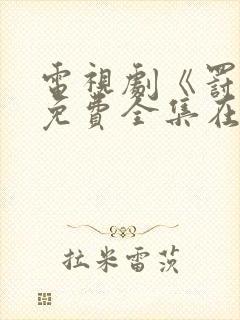 電視劇《罰
免費全集在
拉米雷茨